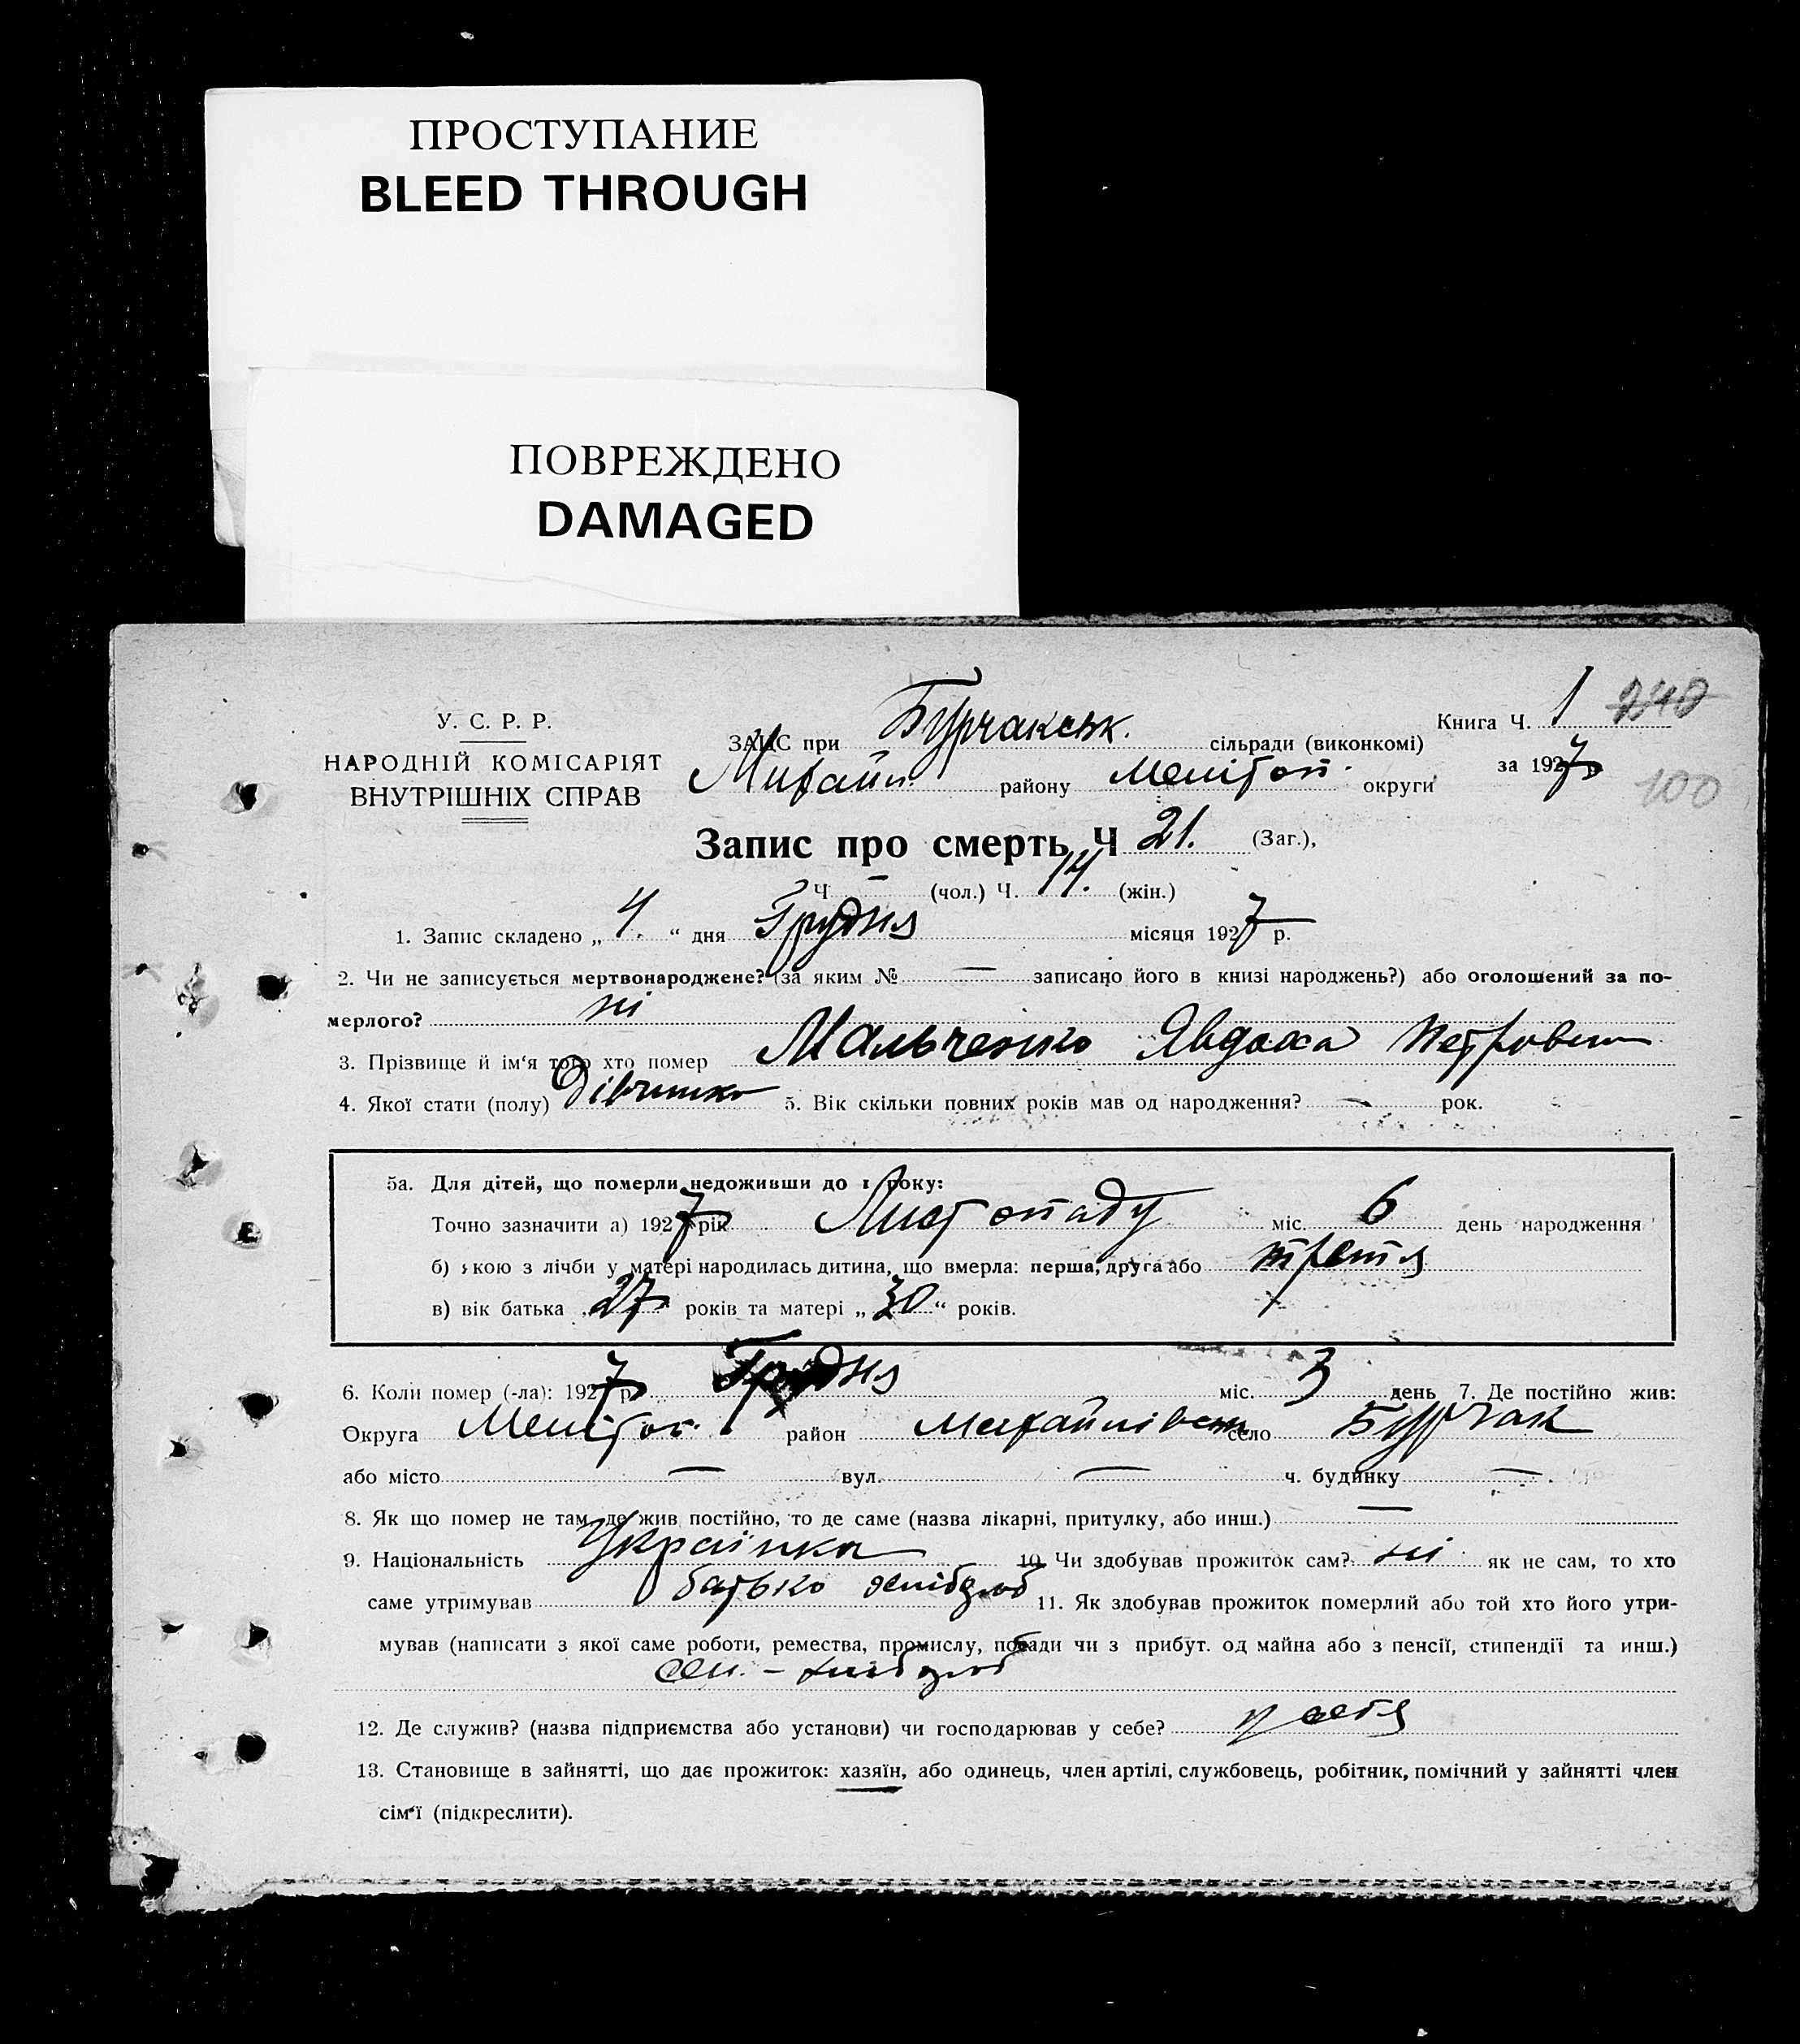 ПРОСТУПАНИЕ
BLEED THROUGH
ПОВРЕЖДЕНО
DAMAGED
У. С. Р. Р.
НАРОДНІЙ КОМІСАРІЯТ
ВНУТРІШНІХ СПРАВ
Книга Ч. 1 240
за 1927
100
ЗАГС при Бурчакськ. сільради (виконкомі)
Михайл. району Мелітоп. округи
Запис про смерть Ч 21. (Заг.),
Ч — (чол.) Ч. 14. (жін.)
1. Запис складено „ 4. “ дня Грудня місяця 1927 р.
2. Чи не записується мертвонароджене? (за яким № — записано його в книзі народжень?) або оголошений за по-
мерлого? ні
3. Прізвище й ім'я того хто помер Мальченко Явдоха Петровна
4. Якої стати (полу) Дівчинка 5. Вік скільки повних років мав од народження? — рок.
5а. Для дітей, що померли недоживши до 1 року:
Точно зазначити а) 1927 рік Листопаду міс. 6 день народження
б) якою з лічби у матері народилась дитина, що вмерла: перша, друга або третя
в) вік батька „ 27 років та матері „ 30 “ років.
6. Коли помер (-ла): 1927 р. Грудня міс. 3 день 7. Де постійно жив:
Округа Мелітоп. район Михайлівськ село Бурчак
або місто — вул. — ч. будинку — .
8. Як що помер не там, де жив постійно, то де саме (назва лікарні, притулку, або инш.) —
9. Національність Українка 10. Чи здобував прожиток сам? ні як не сам, то хто
саме утримував батько хлібороб 11. Як здобував прожиток померлий або той хто його утри-
мував (написати з якої саме роботи, ремества, промислу, посади чи з прибут. од майна або з пенсії, стипендії та инш.)
сел. – хлібороб
12. Де служив? (назва підприємства або установи) чи господарював у себе? у себя
13. Становище в зайнятті, що дає прожиток: хазяїн, або одинець, член артілі, службовець, робітник, помічний у зайнятті член
сім'ї (підкреслити).